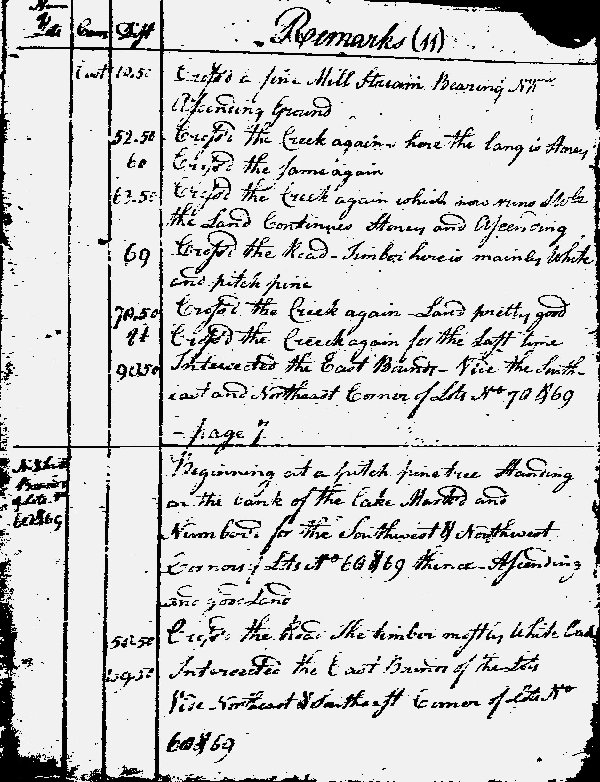 Cour Dist Remarks (11)
East 10.50 Crossd a fine Mill Stream Bearing
Ascending Ground
52.50 Crossd the Creek again - here the lang is Stoney
60 Crossd the same again
63.50 Crossd the Creek again which now runs
the Land Continues Stoney and Ascending
69 Crossd the Road - Timber here is mainly White
and pitch pine
78.50 Crossd the Creek again - Land pretty good
Crossd the Creek again for the Last time
90.50 Intersected the East Bounds - Vice the South-
east and Northeast Corner of Lots No 70 & 69
- page 7
Beginning at a pitch pine tree Standing
on the bank of the lake Marked and
Numberd for the Southwest & Northwest
Corners of Lots No 68 & 69 thence - Ascending
and good Land
Crossd the Road The timber mostly White
Intersected the East Bounds of the Lots
Vice Northeast & Southeast Corner of Lots No
68 & 69